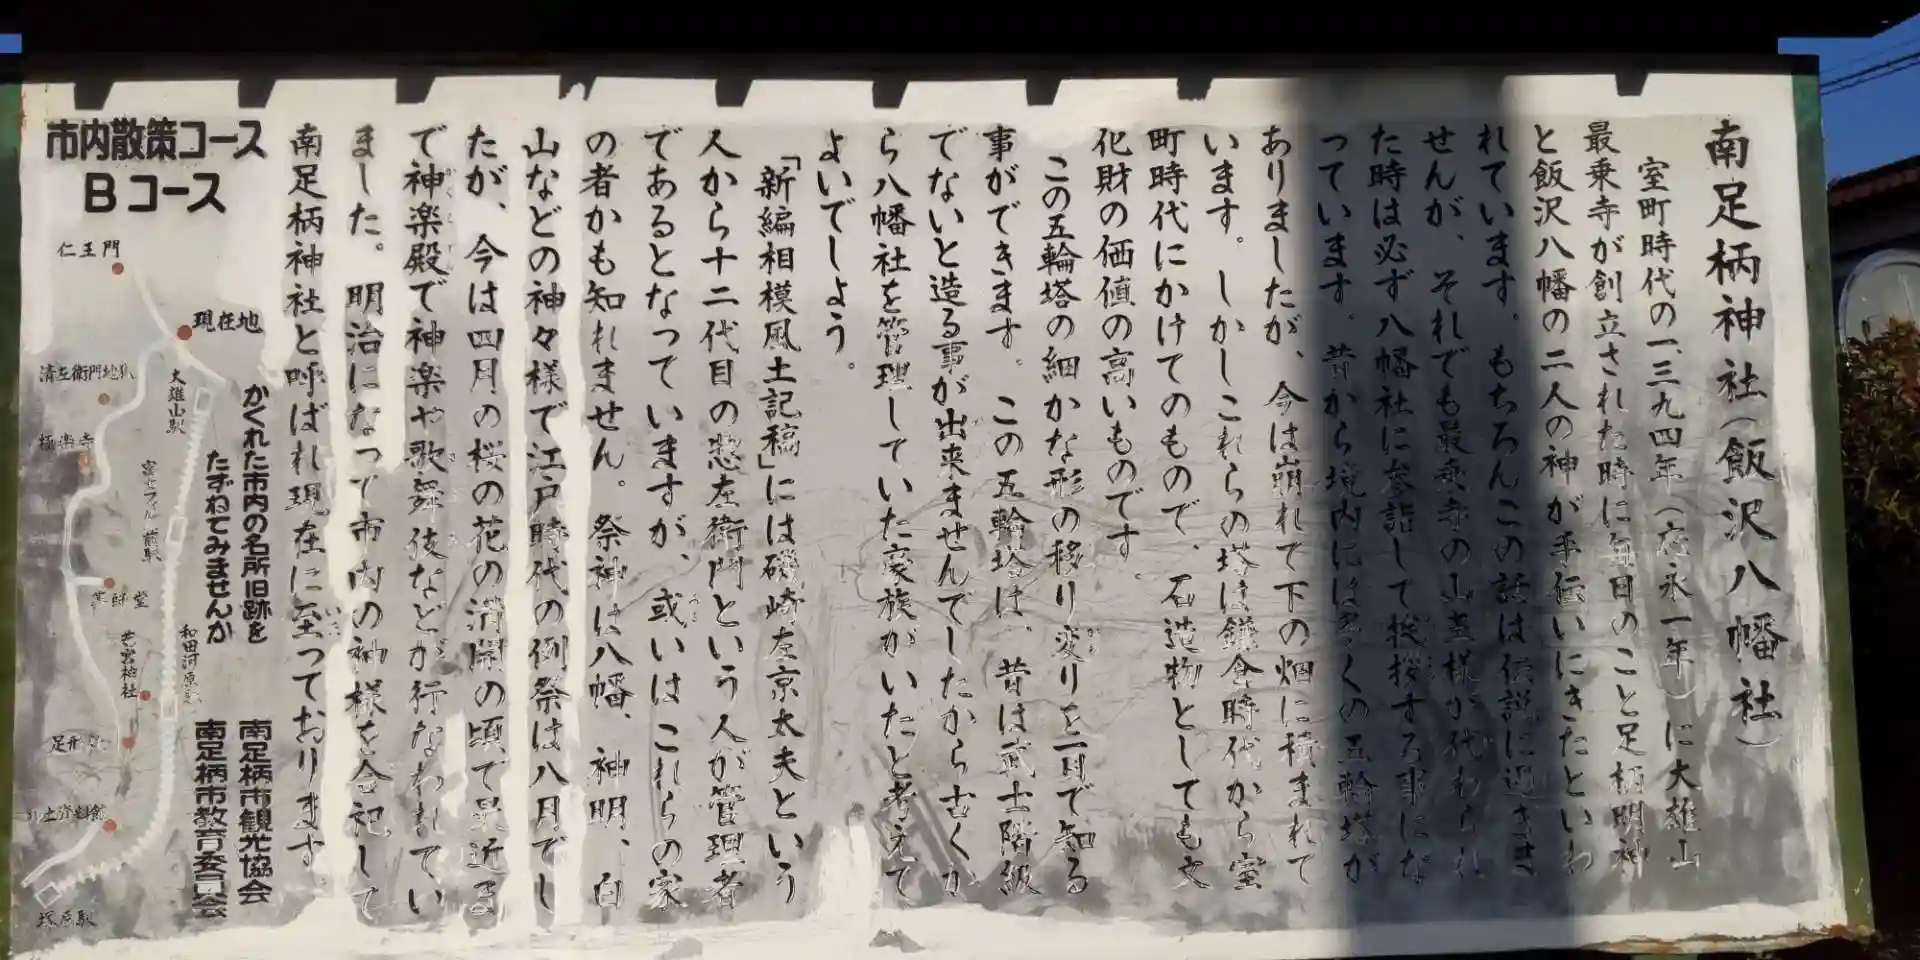 南足柄神社(飯沢八幡社)
室町時代の一、三九四年(応永一年)に大雄山
最乗寺が創立された時に毎日のこと足柄明神
と飯沢八幡の二人の神が手伝いにきたといわ
れています。もちろんこの話は伝説に過ぎま
せんが、それでも最乗寺の山主様が代わられ
た時は必ず八幡社に参詣して挨拶する事にな
っています。昔から境内には多くの五輪塔が
ありましたが、今は崩れて下の畑に積まれて
います。しかしこれらの塔は鎌倉時代から室
町時代にかけてのもので、石造物としても文
化財の価値の高いものです。
この五輪塔の細かな形の移り変りを一目で知る
事ができます。この五輪塔は、昔は武士階級
でないと造る事が出来ませんでしたから古くか
ら八幡社を管理していた豪族がいたと考えて
よいでしょう。
「新編相模風土記稿」には磯崎左京太夫という
人から十二代目の惣左衛門という人が管理者
であるとなっていますが、或いはこれらの家
の者かも知れません。祭神は八幡、神明、白
山などの神々様で江戸時代の例祭は八月でし
たが、今は四月の桜の花の満開の頃で最近ま
で神楽殿で神楽や歌舞伎などが行なわれてい
ました。明治になって市内の神様を合祀して
南足柄神社と呼ばれ現在に至っております。
市内散策コース
Bコース
仁王門
現在地
清左衛門地獄
大雄山駅
極楽寺
富士フイルム前駅
かくれた市内の名所旧跡を
たずねてみませんか
薬師堂
和田河原駅
塚原駅
南足柄市観光協会
南足柄市教育委員会